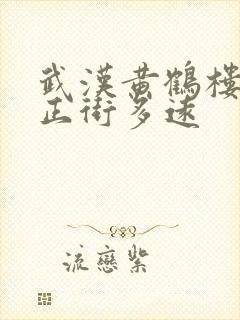 武漢黃鶴樓
正街多遠
流戀紫